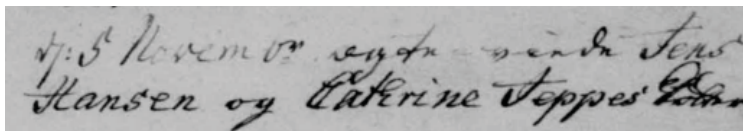 d: 5 Novembr ægte-viede Jens
Hansen og Cathrine Jeppes Dotter